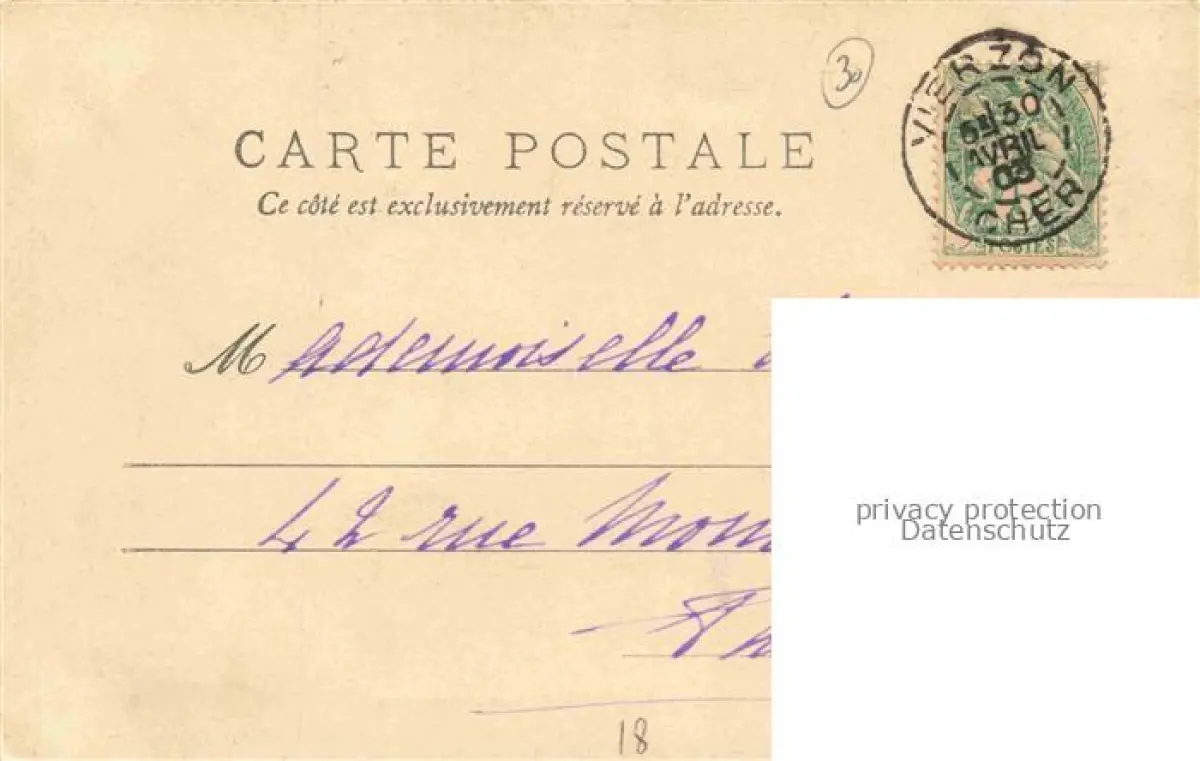 30
VIERZON
5E 30
AVRIL
03
CHER
POSTES
CARTE POSTALE
Ce côté est exclusivement réservé à l'adresse.
Mademoiselle
42 rue
privacy protection
Datenschutz
18